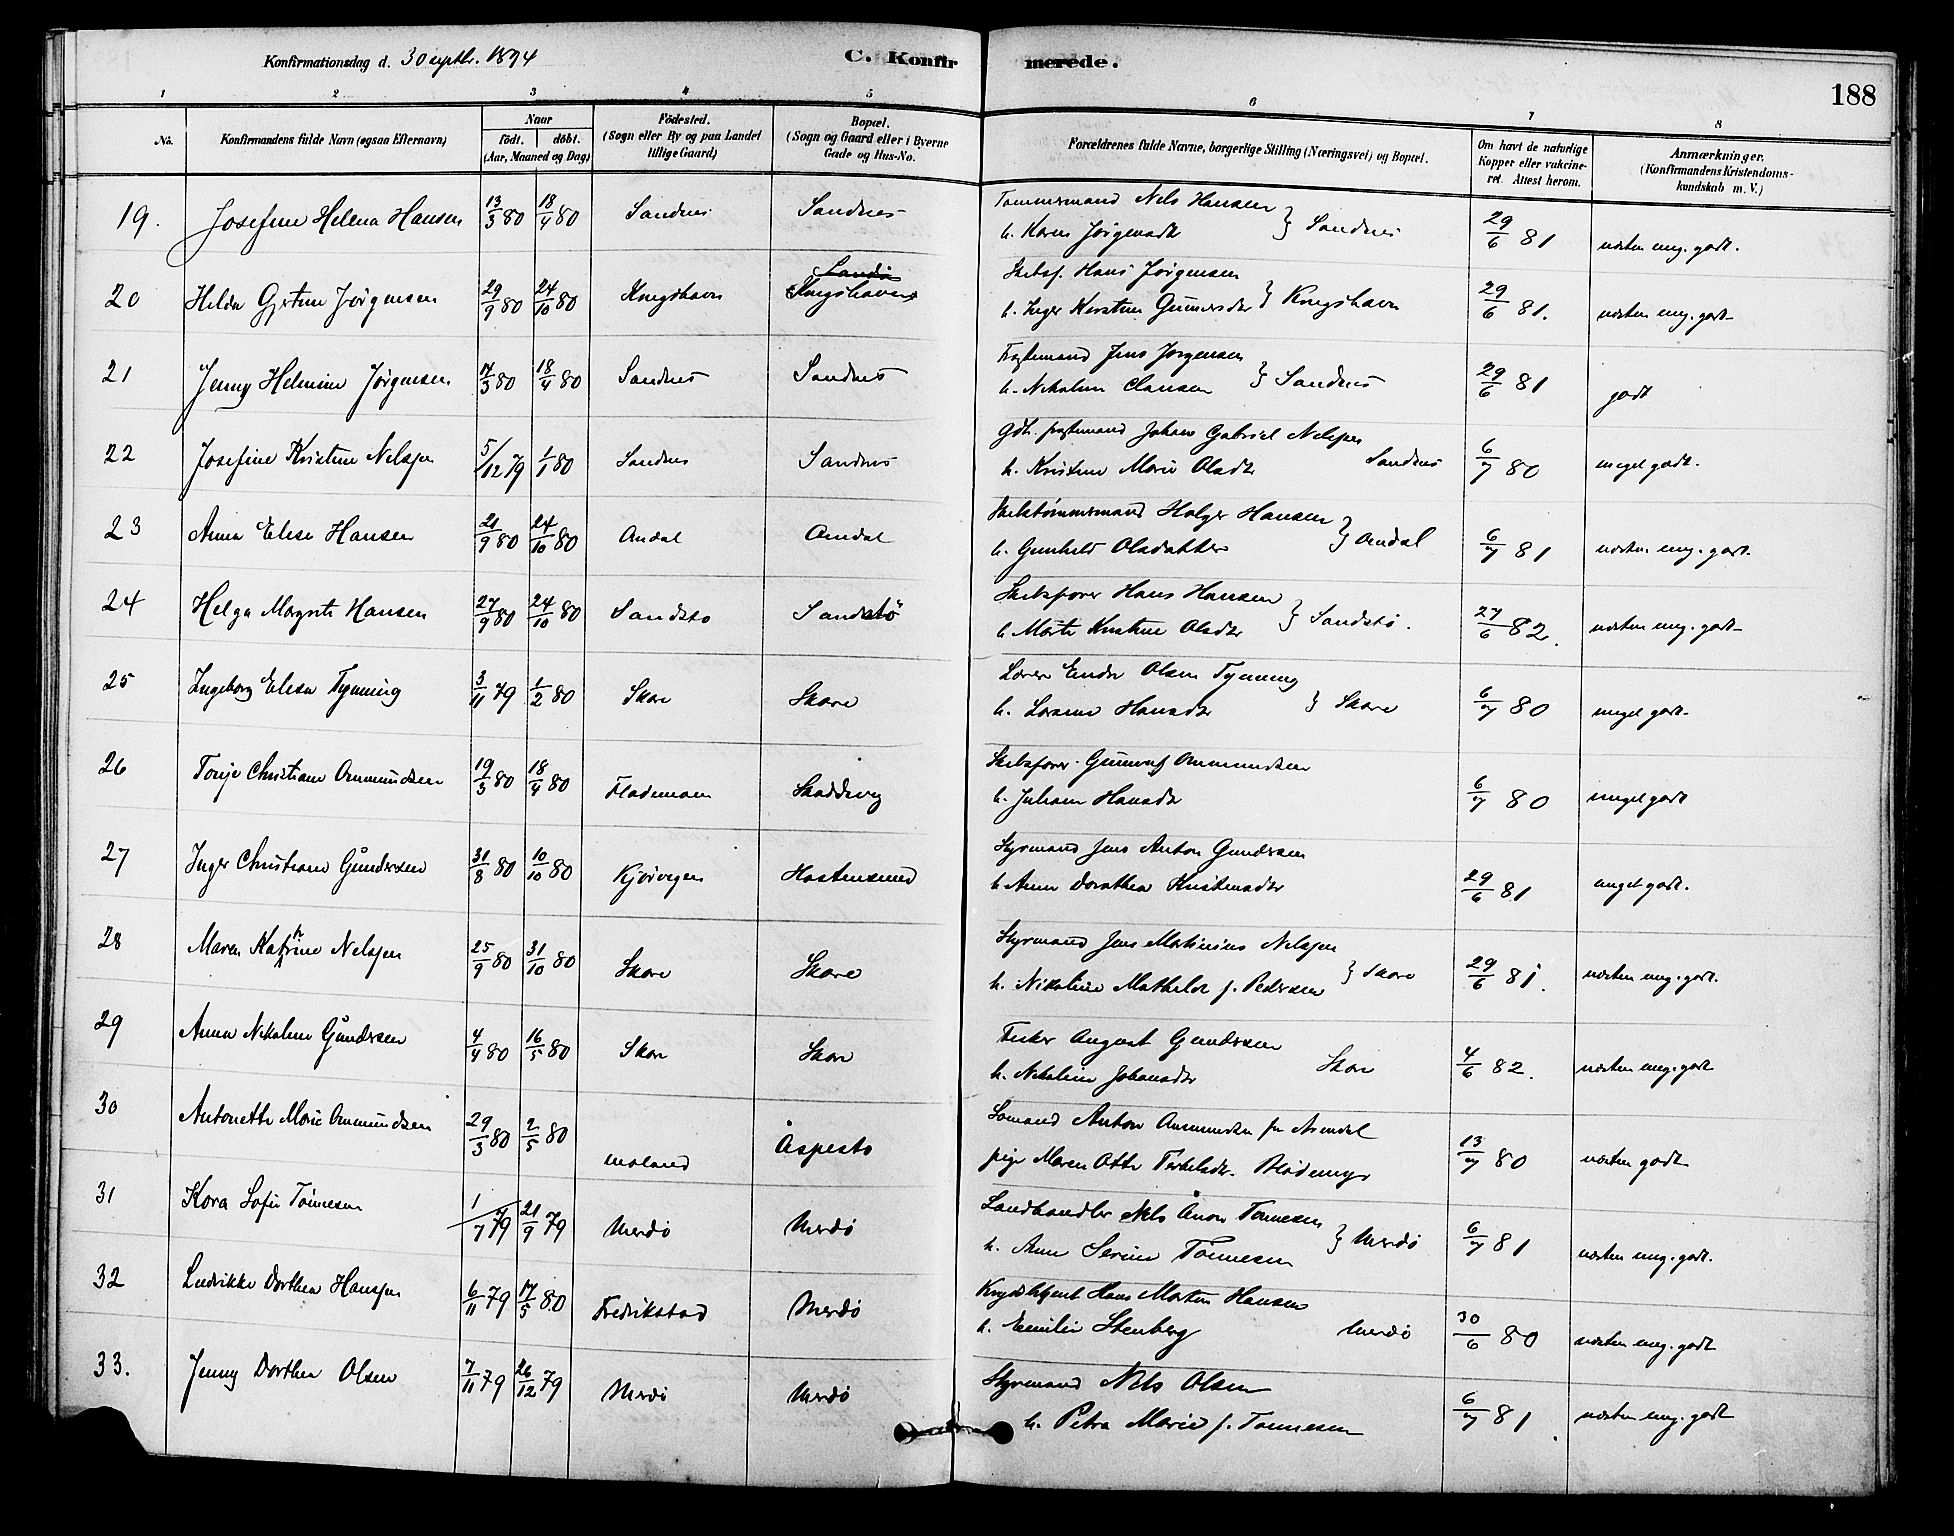 Konfirmationsdag d. 30 septbr. 1894
C. Konfirmerede.
188
1 2 3 4 5 6 7 8
No. Konfirmandens fulde Navn (ogsaa Efternavn) Naar født. døbt. (Aar, Maaned og Dag) Födested. (Sogn eller By og paa Landet tillige Gaard) Bopæl. (Sogn og Gaard eller i Byerne Gade og Hus-No. Forældrenes fulde Navne, borgerlige Stilling (Næringsvei) og Bopæl. Om havt de naturlige Kopper eller vakcineret. Attest herom. Anmærkninger. (Konfirmandens Kristendomskundskab m. V.)
19. Josefine Helena Hansen 13/3 80 18/4 80 Sandnes Sandnes Tømmermand Nels Hansen
h. Karen Jørgensdtr } Sandnes 29/6 81 næsten meg. godt.
20 Helda Gjrtine Jørgensen 29/9 80 24/10 80 Kongshavn Kongshavn Skibsf. Hans Jørgensen
h. Inger Kerstine Gunnersdtr } Kongshavn 29/6 81. næsten meg. godt
21 Jenny Helmine Jørgensen 14/3 80 18/4 80 Sandnes Sandnes Fragtemand Jens Jørgensen
h. Nikoline Clausen } Sandnes 29/6 81 godt
22 Josefine Kristine Nelsen 5/12 79 1/1 80 Sandnes Sandnes Gdb. fragtemand Johan Gabriel Nelsen
h. Kristine Marie Olsdtr Sandnes 6/7 80 meget godt.
23 Anna Elise Hansen 21/9 80 24/10 80 Omdal Omdal Skibstømmermand Holger Hansen
h. Gunhild Olsdatter } Omdal 6/7 81 næsten meg. godt.
24 Helga Magrete Hansen 27/9 80 24/10 80 Sandstø Sandstø Skibsfører Hans Hansen
h. Marte Kristine Olsdtr } Sandstø. 27/6 82. næsten meg. godt
25 Ingeborg Elisa Tynning 3/11 79 1/2 80 Skare Skare Lærer Endre Olsen Tynning
h. Lorense Hansdtr } Skare 6/7 80 meget godt.
26 Torije Christiane Ommundsen 19/3 80 18/4 80 Flademoen Skaddevig Skibsfører Gunnuf Ommundsen
h. Juliane Hansdtr 6/7 80 meget godt
27 Inger Christiane Gundersen 31/8 80 10/10 80 Kjørvegen Hastensund Styrmand Jens Anton Gundersen
h. Anne Dorothea Kristensdtr 29/6 81 meget godt.
28 Maren Kathrine Nelsen 25/9 80 31/10 80 Skare Skare Styrmand Jens Matinius Nelsen
h. Nikoline Mathilde f. Pedersen } Skare 29/6 81. næsten meg. godt.
29 Anna Nikoline Gundersen 4/4 80 16/5 80 Skare Skare Fisker August Gundersen
h. Nikoline Johansdtr Skare 4/6 82. næsten meg. godt
30 Antonette Marie Ommundsen 29/3 80 2/5 80 Moland Aspestø Sømand Anton Ommundsen fra Arendal
pige Maren Otte Terkelsdtr. Blødemyr 13/7 80 næsten godt
31 Kora Sofie Tønnesen 1/7 79 21/9 79 Merdø Merdø Landhandler Nels Anon Tønnesen
h. Anne Serine Tønnesen } Merdø 6/7 81 næsten meg. godt.
32 Ludvikke Dorthea Hansen 6/11 79 17/5 80 Fredrikstad Merdø Hans Morten Hansen
h. Emilie Stenberg Merdø 30/6 80 næsten meg. godt
33. Jenny Dorthea Olsen 7/11 79 26/12 79 Merdø Merdø Styrmand Nels Olsen
h. Petra Marie f. Tønnesen 6/7 81. næsten meg. godt